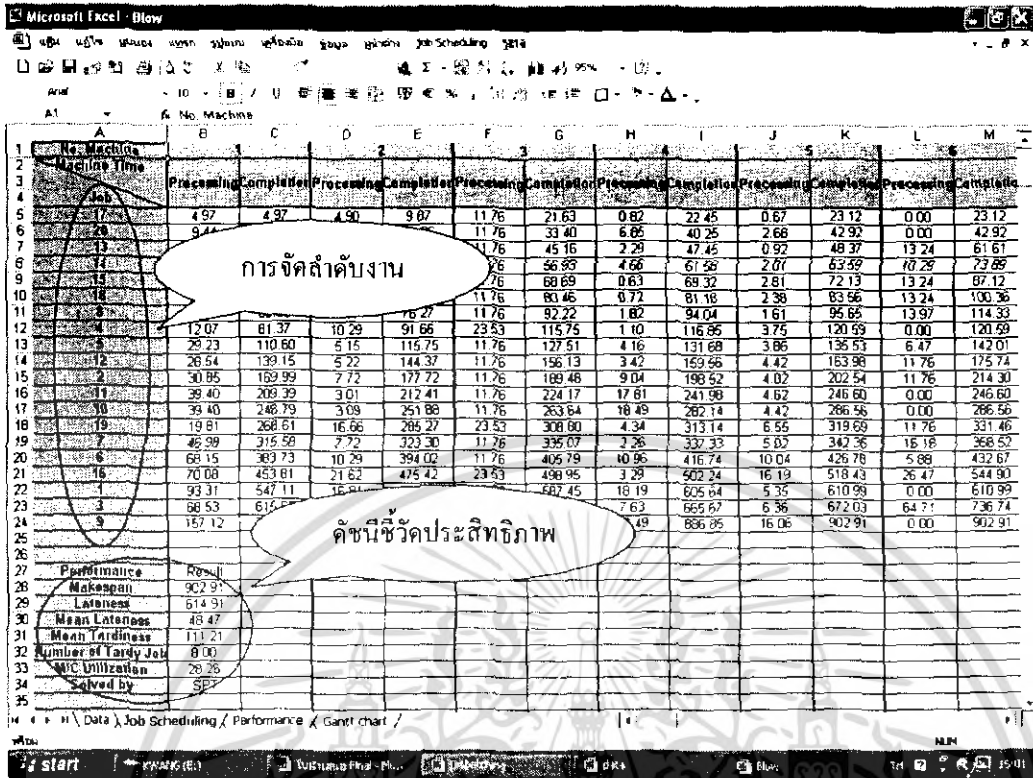 Microsoft Excel - Blow
Job Scheduling
Arial 10 B
95%
A1 fx No. Machine
A B C D E F G H I J K L M
1 No. Machine 1 2 3 4 5 6
2 Machine Time
3 Processing Completion Processing Completion Processing Completion Processing Completion Processing Completion Processing Completio
4 Job
5 17 4.97 4.97 4.90 9.87 11.76 21.63 0.82 22.45 0.67 23.12 0.00 23.12
6 20 11.76 33.40 6.85 40.25 2.68 42.92 0.00 42.92
7 13 11.76 45.16 2.29 47.45 0.92 48.37 13.24 61.61
8 14 56.93 4.66 61.58 2.01 63.59 10.29 73.89
9 15 68.69 0.63 69.32 2.81 72.13 13.24 87.12
10 18 11.76 80.46 0.72 81.18 2.38 83.56 13.24 100.36
11 8 76.27 11.76 92.22 1.82 94.04 1.61 95.65 13.97 114.33
12 4 12.07 81.37 10.29 91.66 23.53 115.75 1.10 116.85 3.75 120.59 0.00 120.59
13 5 29.23 110.60 5.15 115.75 11.76 127.51 4.16 131.68 3.86 135.53 6.47 142.01
14 12 28.54 139.15 5.22 144.37 11.76 156.13 3.42 159.56 4.42 163.98 11.76 175.74
15 2 30.85 169.99 7.72 177.72 11.76 189.48 9.04 198.52 4.02 202.54 11.76 214.30
16 11 39.40 209.39 3.01 212.41 11.76 224.17 17.81 241.98 4.62 246.60 0.00 246.60
17 10 39.40 248.79 3.09 251.88 11.76 263.64 18.49 282.14 4.42 286.56 0.00 286.56
18 19 19.81 268.61 16.66 285.27 23.53 308.80 4.34 313.14 6.55 319.69 11.76 331.46
19 7 46.98 315.58 7.72 323.30 11.76 335.07 2.26 337.33 5.02 342.36 16.18 358.52
20 6 68.15 383.73 10.29 394.02 11.76 405.79 10.96 416.74 10.04 426.78 5.88 432.67
21 16 70.08 453.81 21.62 475.42 23.53 498.95 3.29 502.24 16.19 518.43 26.47 544.90
22 1 93.31 547.11 587.45 18.19 605.64 5.35 610.99 0.00 610.99
23 3 68.53 7.63 665.67 6.36 672.03 64.71 736.74
24 9 157.12 886.85 16.06 902.91 0.00 902.91
25
26
27 Performance Result
28 Makespan 902.91
29 Lateness 614.91
30 Mean Lateness 48.47
31 Mean Tardiness 111.21
32 Number of Tardy Job 8.00
33 M/C Utilization 28.26
34 Solved by SPT
35
การจัดลำดับงาน
ดัชนีชี้วัดประสิทธิภาพ
Data Job Scheduling Performance Gantt chart
NUM
start KWANG (E:) Dispatching Blow 15:01